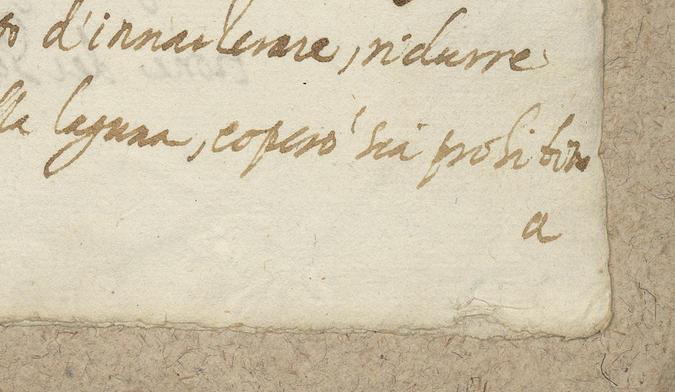 d'innarterare, ridurre
lla laguna, e però sia prohibito
a